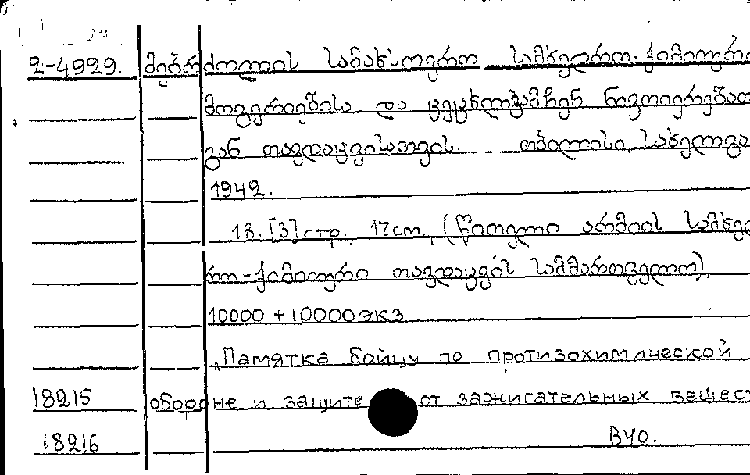 2-4929. მებრძოლის სანახ-ოვრო სამხედრო-ქიმიური
მოგერიებისა და ცეცხლგამჩენ ნივთიერებათა
გან თავდაცვისათვის. თბილისი, სახელგა
1942.
13. [3] стр. 17 cm. (წითელი არმიის სამხედ
რო-ქიმიური თავდაცვის სამმართველო).
10000 + 10000 экз
„Памятка бойцу по противохимической
18215 обороне и защите от зажигательных вещес
18216 ВУО.